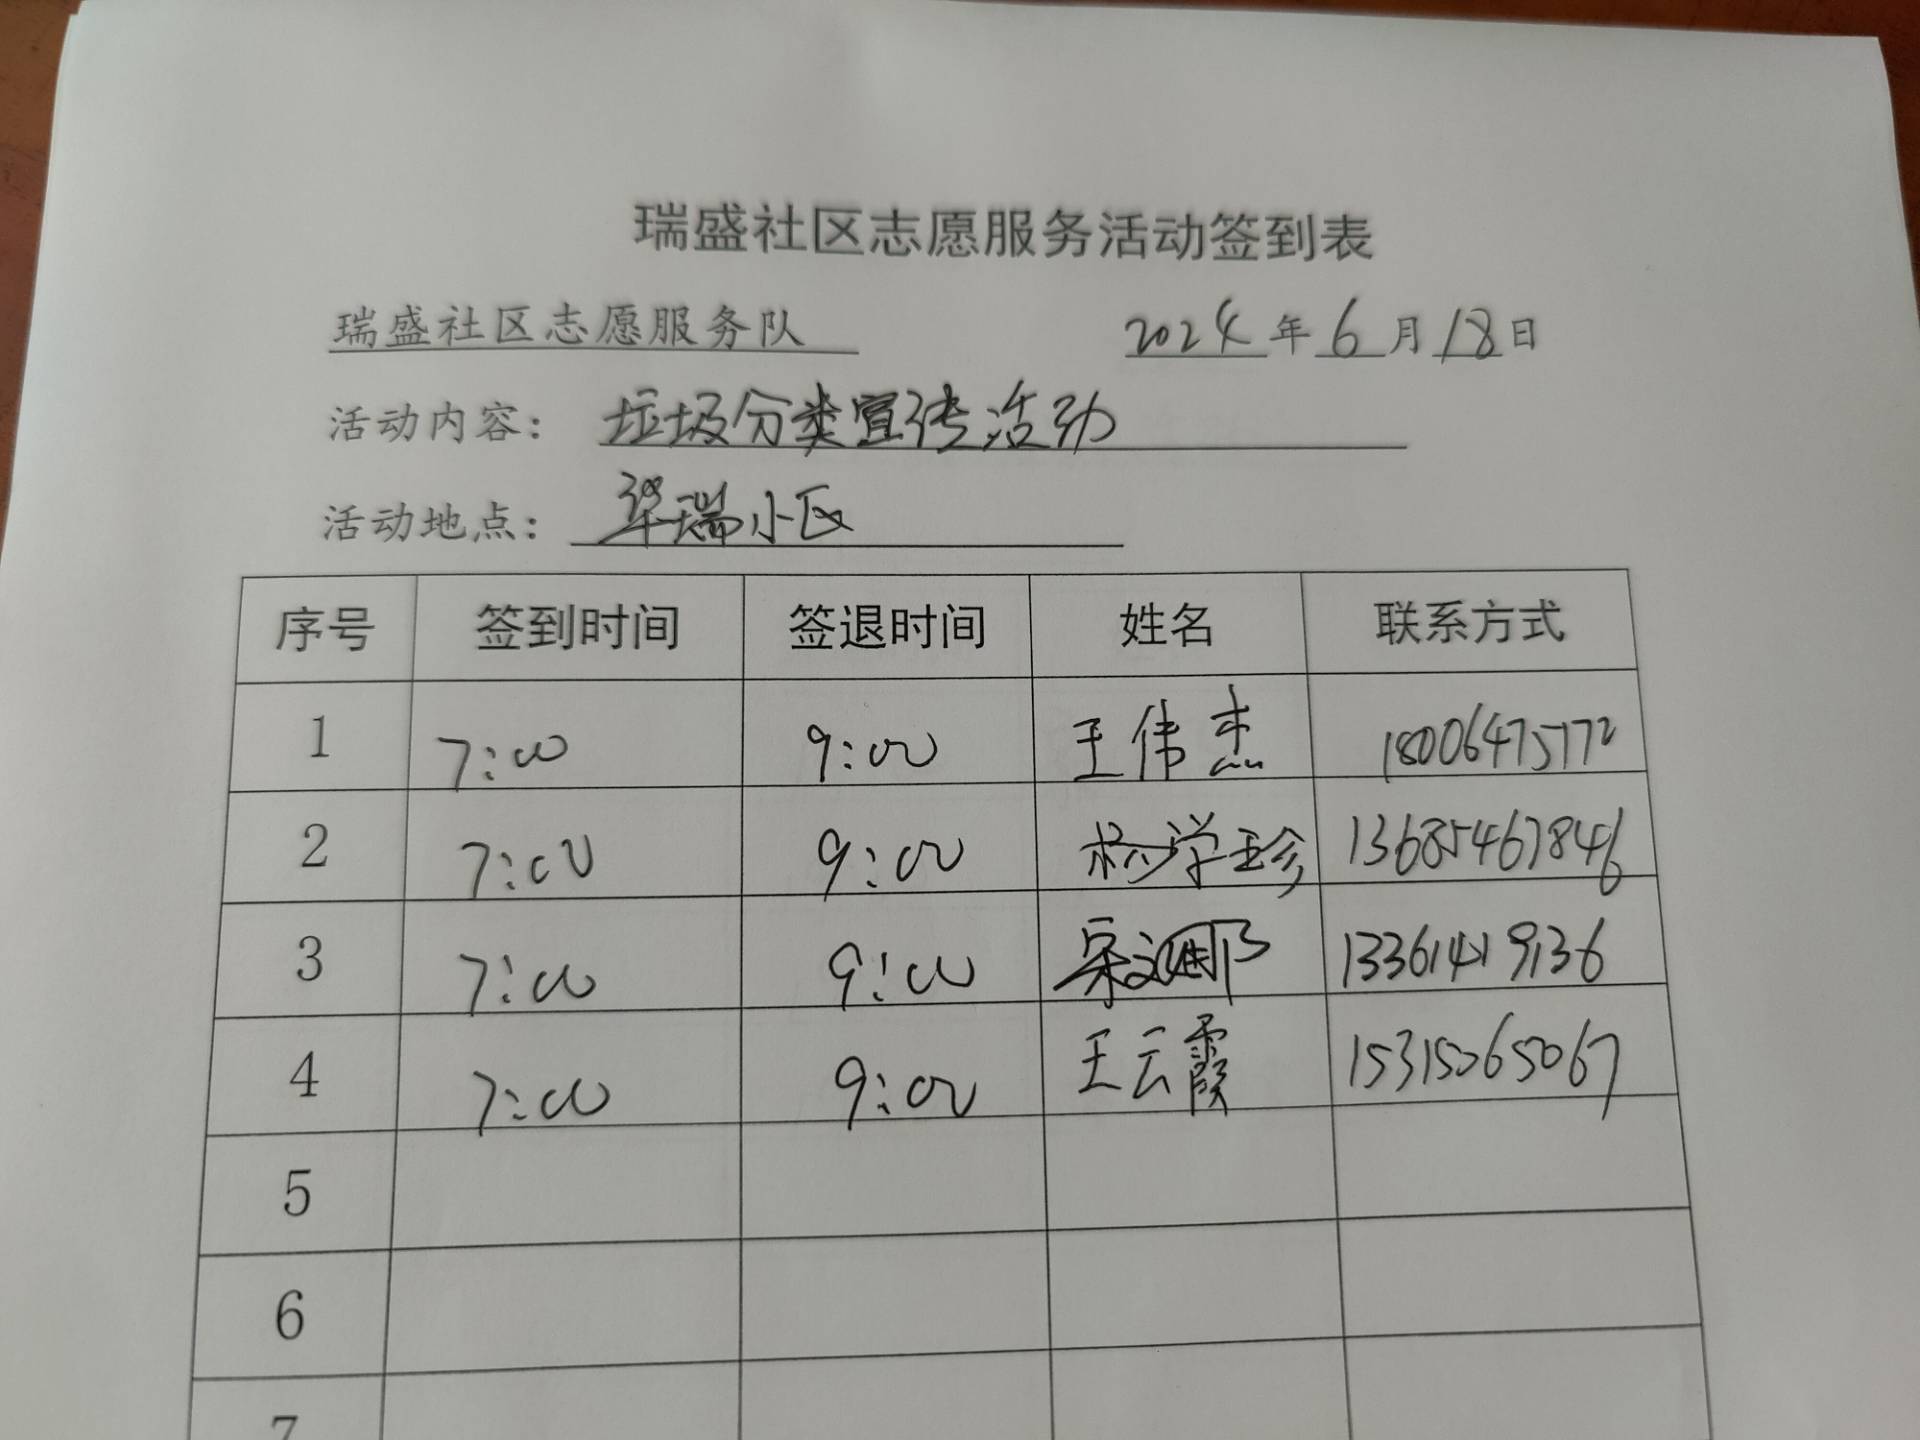 瑞盛社区志愿服务活动签到表
瑞盛社区志愿服务队 2024年6月18日
活动内容： 垃圾分类宣传活动
活动地点： 华瑞小区
序号 签到时间 签退时间 姓名 联系方式
1 7:00 9:00 王伟杰 18006475172
2 7:00 9:00 杨学珍 13685467846
3 7:00 9:00 宋文 13361419136
4 7:00 9:00 王云霞 15315065067
5
6
7